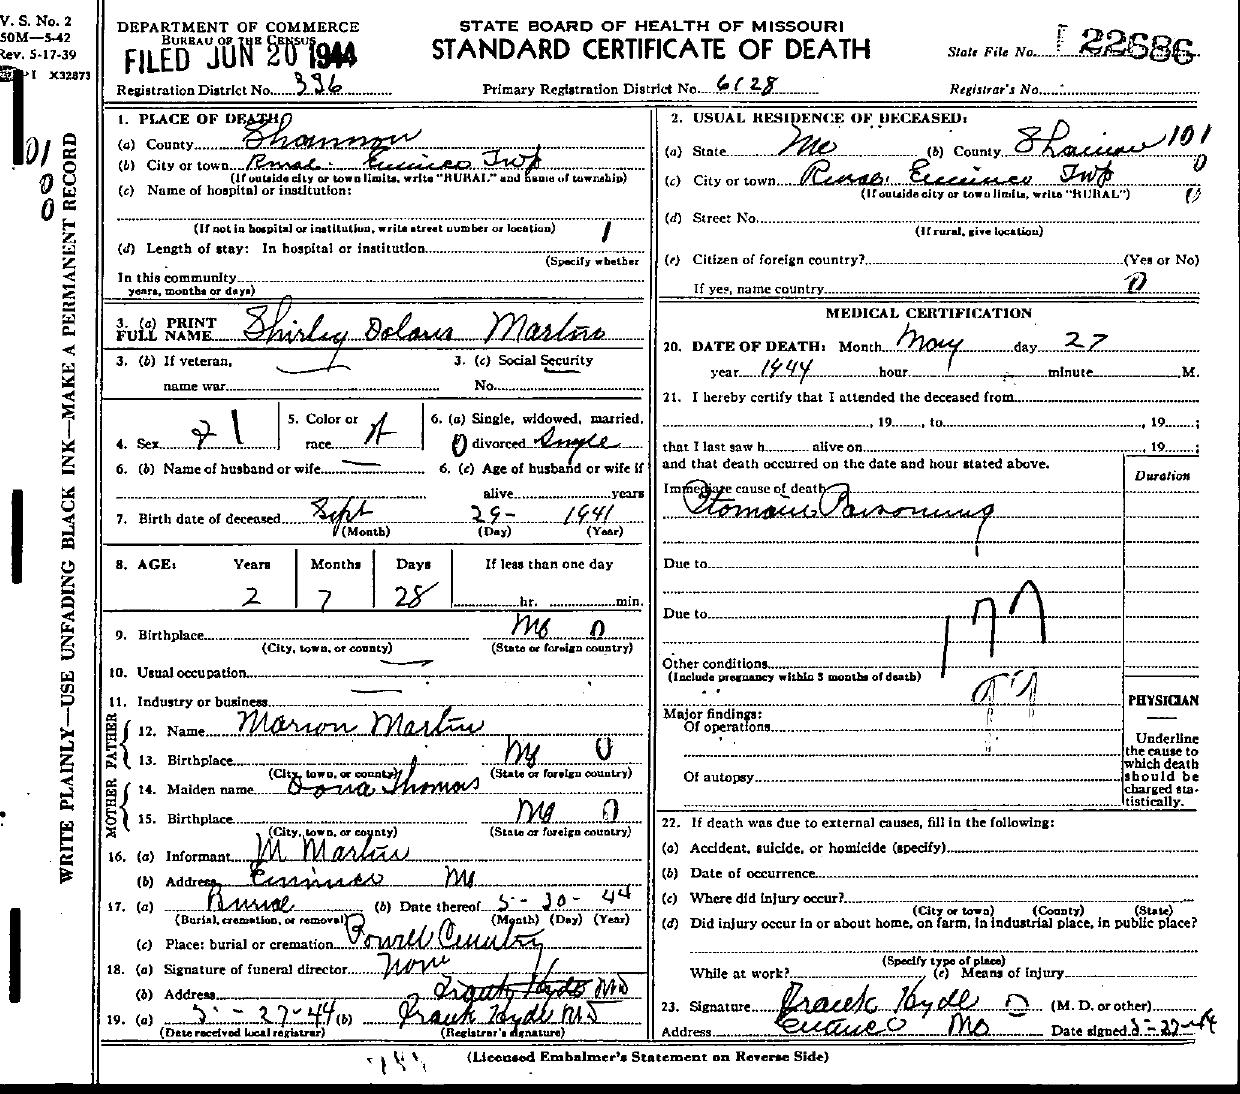 V. S. No. 2
50M—5-42
Rev. 5-17-39
I X32873
DEPARTMENT OF COMMERCE
BUREAU OF THE CENSUS
FILED JUN 20 1944
STATE BOARD OF HEALTH OF MISSOURI
STANDARD CERTIFICATE OF DEATH
State File No. 22686
Registration District No. 336
Primary Registration District No. 6128
Registrar's No.
WRITE PLAINLY—USE UNFADING BLACK INK—MAKE A PERMANENT RECORD
1. PLACE OF DEATH:
(a) County Shannon
(b) City or town Rural. Eminence Twp
(If outside city or town limits, write "RURAL" and name of township)
(c) Name of hospital or institution:
(If not in hospital or institution, write street number or location) 1
(d) Length of stay: In hospital or institution
(Specify whether
In this community
years, months or days)
3. (a) PRINT
FULL NAME Shirley Doloris Martin
3. (b) If veteran,
name war
3. (c) Social Security
No.
4. Sex 1
5. Color or
race
6. (a) Single, widowed, married,
0 divorced Single
6. (b) Name of husband or wife
6. (c) Age of husband or wife if
alive years
7. Birth date of deceased Sept 29- 1941
(Month) (Day) (Year)
8. AGE: Years Months Days If less than one day
2 7 28 hr. min.
9. Birthplace Mo 0
(City, town, or county) (State or foreign country)
10. Usual occupation
11. Industry or business
FATHER
12. Name Marion Martin
13. Birthplace Mo 0
(City, town, or county) (State or foreign country)
MOTHER
14. Maiden name Dona Thomas
15. Birthplace Mo 0
(City, town, or county) (State or foreign country)
16. (a) Informant M Martin
(b) Address Eminence Mo
17. (a) Burial (b) Date thereof 5-30-44
(Burial, cremation, or removal) (Month) (Day) (Year)
(c) Place: burial or cremation Powell Cemetery
18. (a) Signature of funeral director None
(b) Address Frank Hyde MD
19. (a) 5-27-44 (b) Frank Hyde MD
(Date received local registrar) (Registrar's signature)
2. USUAL RESIDENCE OF DECEASED:
(a) State Mo (b) County Shannon 101
(c) City or town Rural. Eminence Twp 0
(If outside city or town limits, write "RURAL") 0
(d) Street No.
(If rural, give location)
(e) Citizen of foreign country? (Yes or No)
If yes, name country 0
MEDICAL CERTIFICATION
20. DATE OF DEATH: Month May day 27
year 1944 hour minute M.
21. I hereby certify that I attended the deceased from
, 19 , to , 19 ;
that I last saw h alive on , 19 ;
and that death occurred on the date and hour stated above.
Duration
Immediate cause of death
Ptomaine Poisoning
Due to
Due to
Other conditions
(Include pregnancy within 3 months of death)
Major findings:
Of operations
Of autopsy
PHYSICIAN
Underline
the cause to
which death
should be
charged sta-
tistically.
22. If death was due to external causes, fill in the following:
(a) Accident, suicide, or homicide (specify)
(b) Date of occurrence
(c) Where did injury occur?
(City or town) (County) (State)
(d) Did injury occur in or about home, on farm, in industrial place, in public place?
(Specify type of place)
While at work? (e) Means of injury
23. Signature Frank Hyde (M. D. or other)
Address Eminence Mo Date signed 5-27-44
(Licensed Embalmer's Statement on Reverse Side)